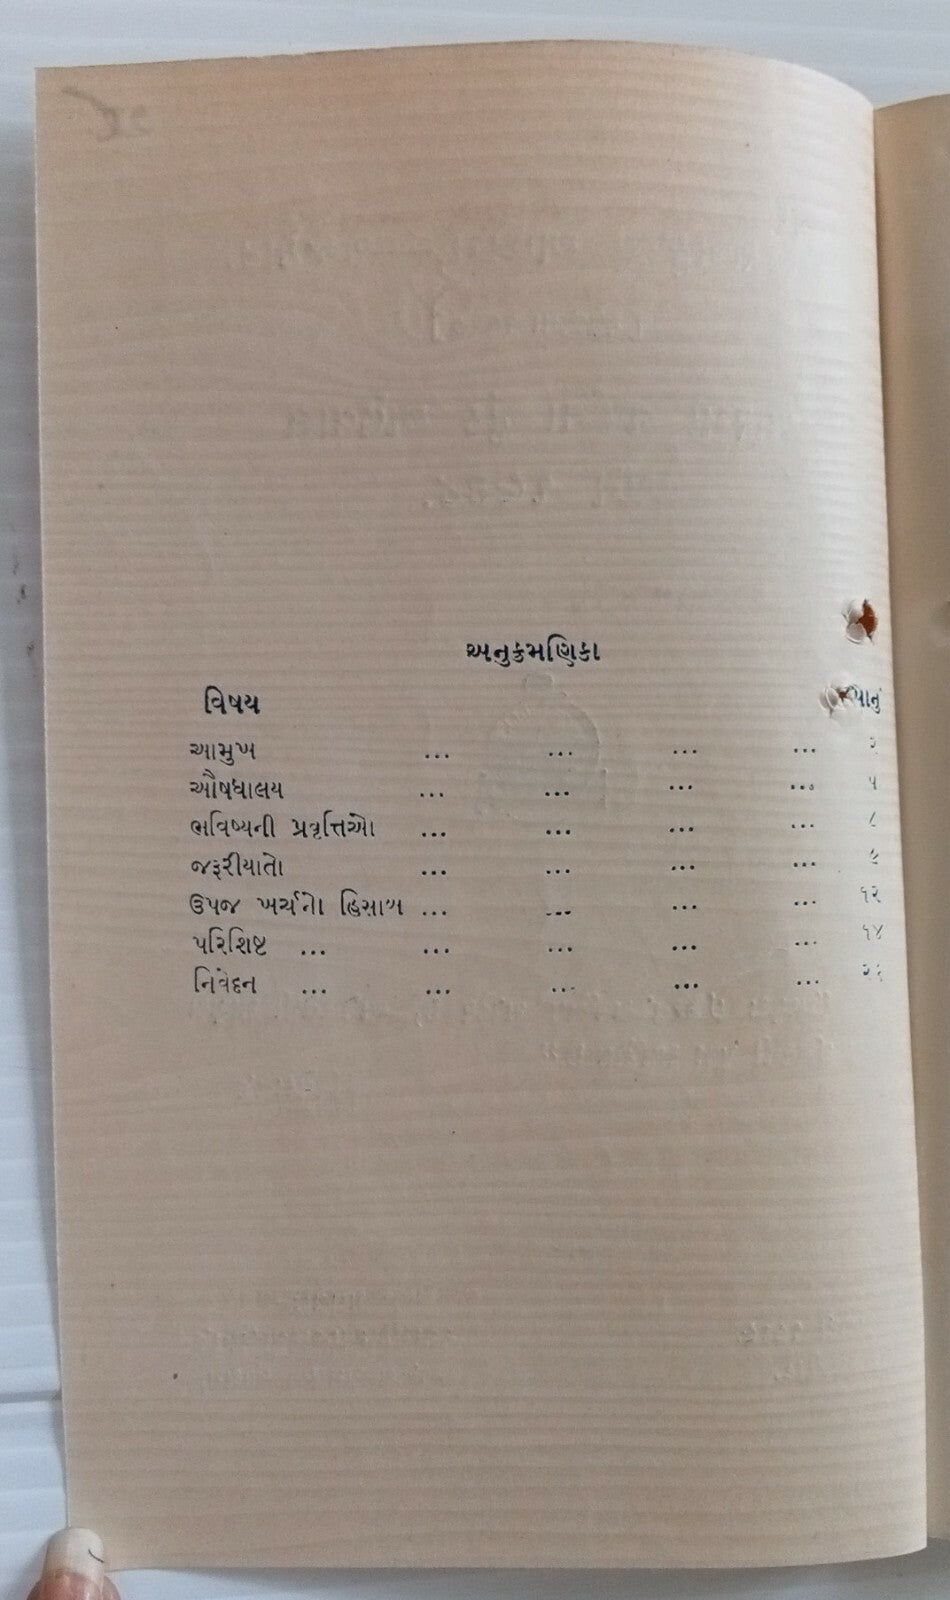 અનુક્રમણિકા
વિષય પાનું
આમુખ ... ... ... ... ૨
ઔષધાલય ... ... ... ... ૫
ભવિષ્યની પ્રવૃત્તિઓ ... ... ... ... ૮
જરૂરીયાતો ... ... ... ... ૯
ઉપજ ખર્ચનો હિસાબ ... ... ... ... ૧૨
પરિશિષ્ટ ... ... ... ... ... ૧૪
નિવેદન ... ... ... ... ...